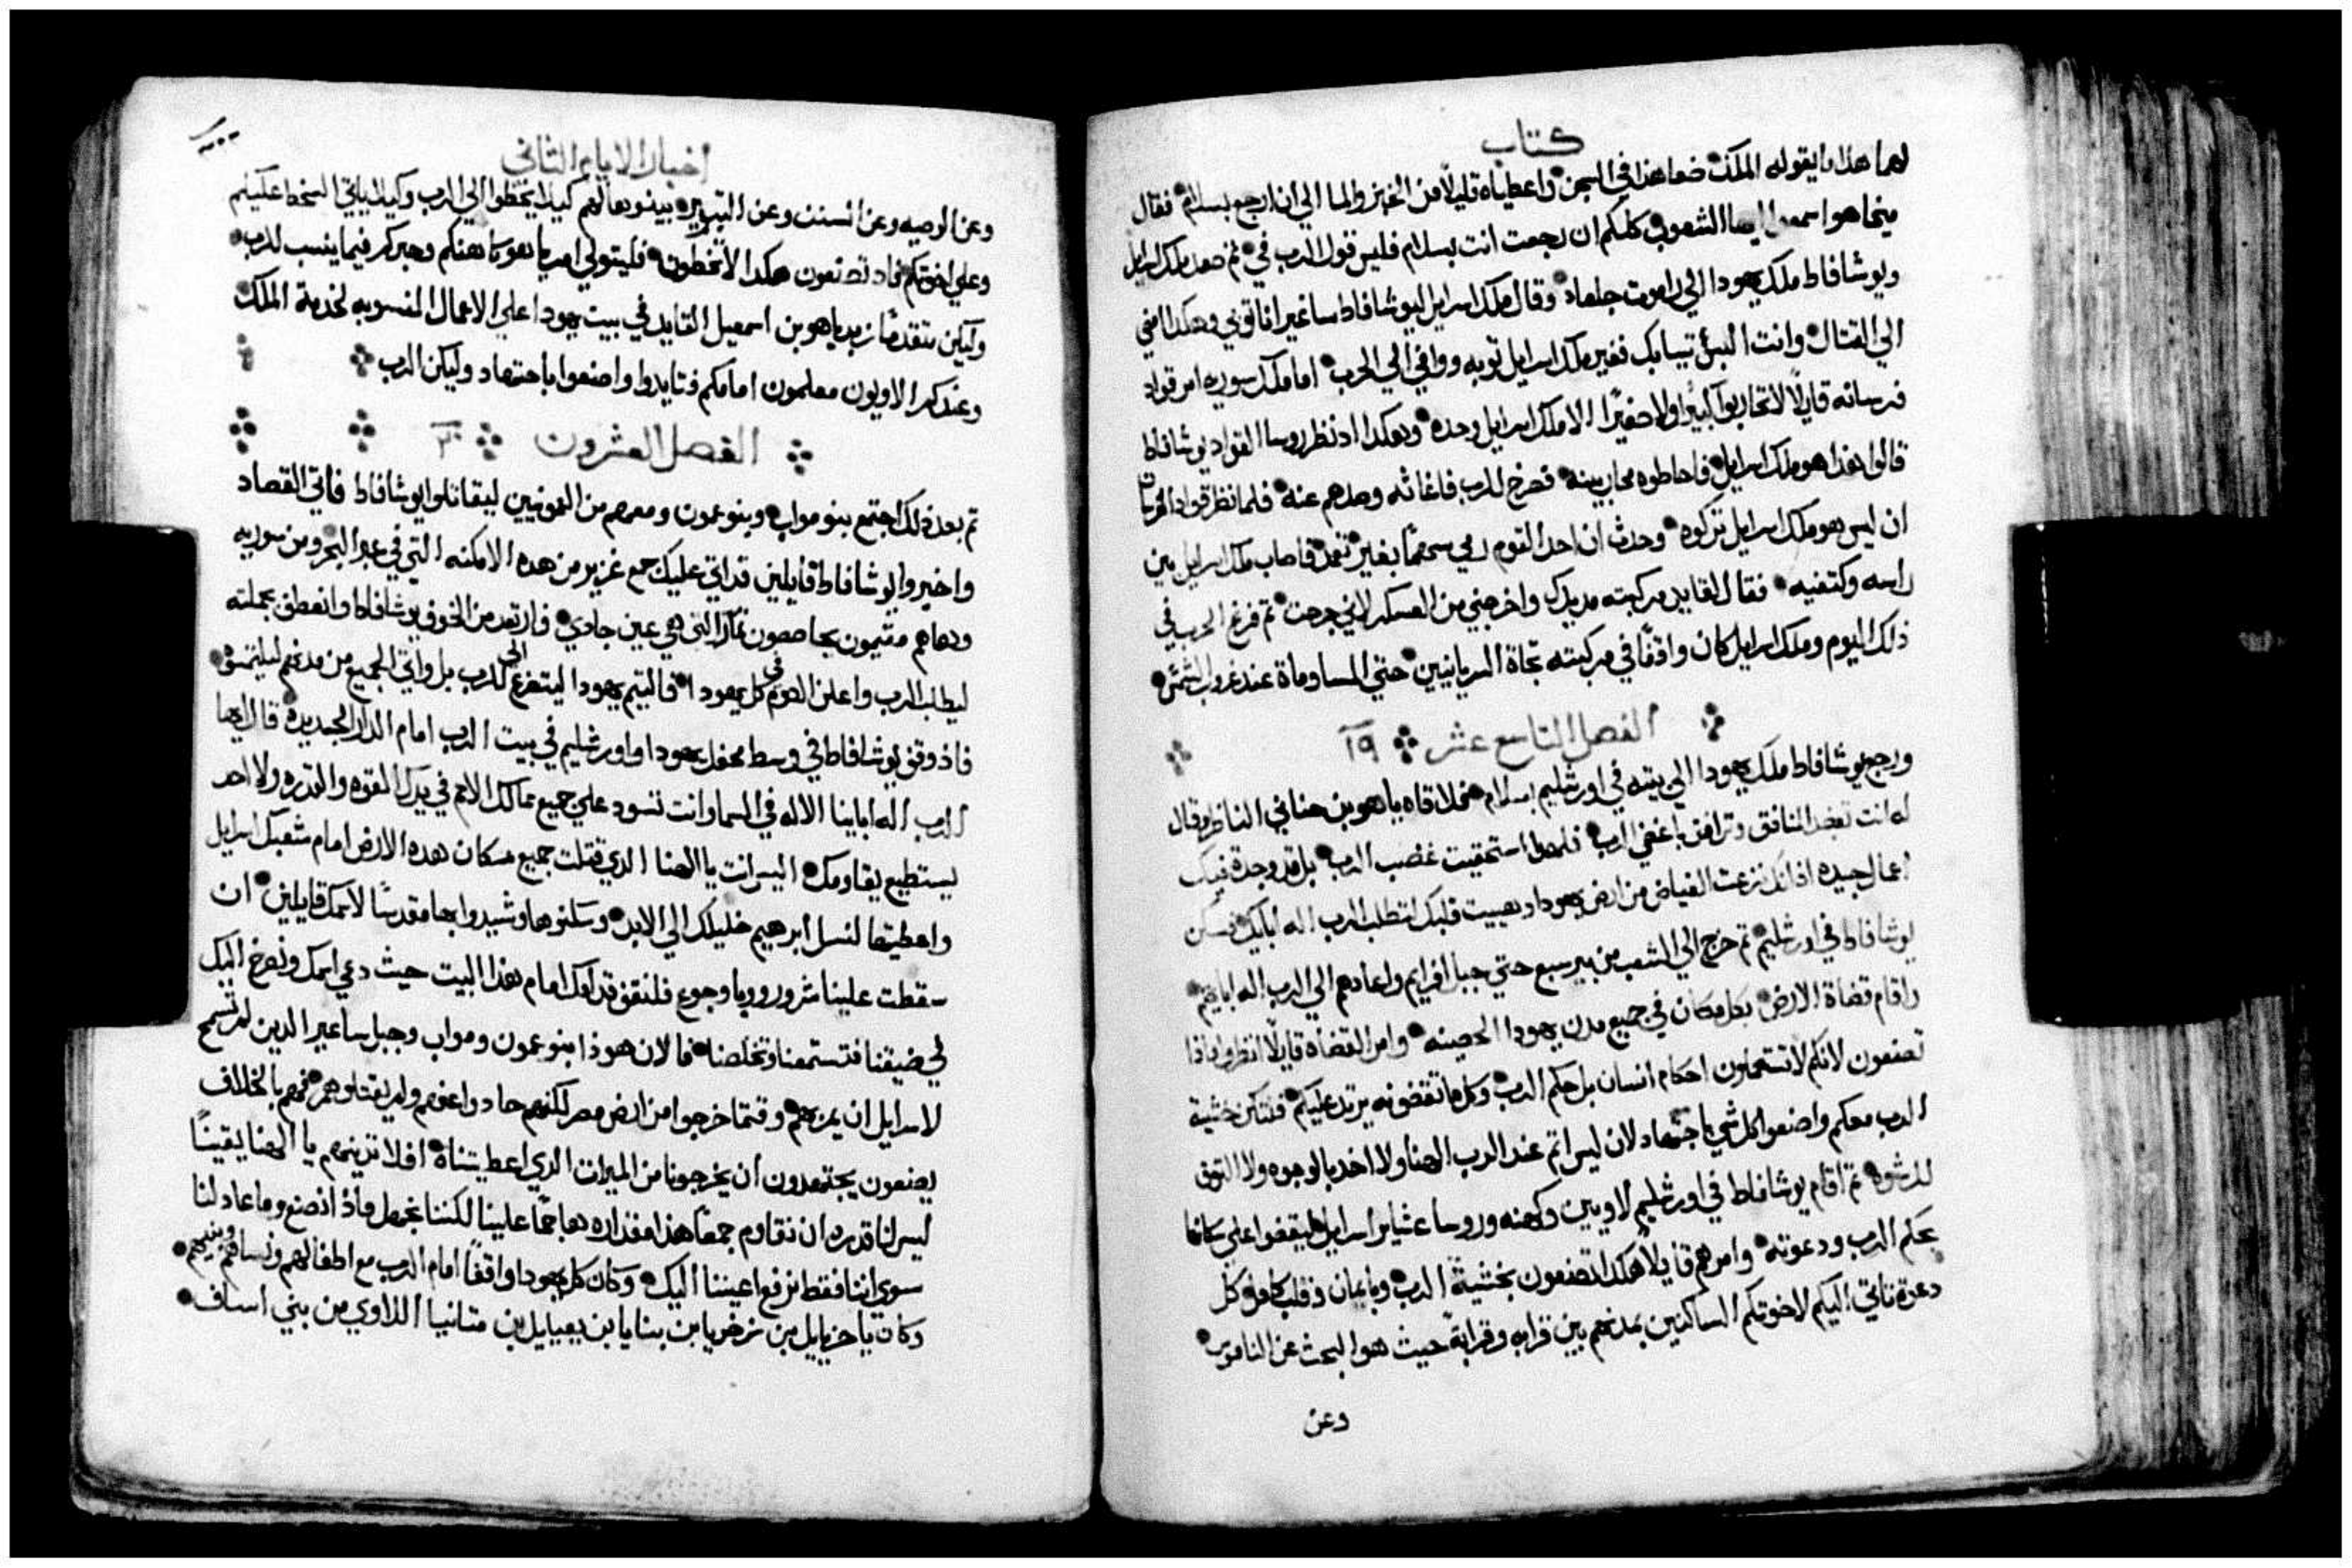 كتاب
لهما هذا ما يقوله الملك ضعا هذا في السجن واعطياه قليلاً من الخبز والما الي ان ارجع بسلام فقال
ميخا هو اسمعوا ايها الشعوب كلكم ان رجعت انت بسلام فليس قول الرب في ثم صعد ملك اسرايل
ويوشافاط ملك يهودا الي راموت جلعاد وقال ملك اسرايل ليوشافاط ساغير انا ثوبي وهكذا امضي
الي القتال وانت البس ثيابك فغير ملك اسرايل ثوبه ووافي الي الحرب اما ملك سوريه امر قواد
فرسانه قايلاً لا تحاربوا كبيرًا ولا صغيرًا الا ملك اسرايل وحده وهكدا اد نظر روسا القواد يوشافاط
قالوا هذا هو ملك اسرايل فاحاطوه محاربينه فصرخ للرب فاغاثه وصدهم عنه فلما نظر قواد الفرسان
ان ليس هو ملك اسرايل تركوه وحدث ان احد القوم رمي سهمًا بغير تعمد فاصاب ملك اسرايل بين
راسه وكتفيه فقال لقايد مركبته مد يدك واخرجني من العسكر لاني جرحت ثم فرغ الحرب في
ذلك اليوم وملك اسرايل كان واقفًا في مركبته تجاة السريانيين حتي المسا وماة عند غروب الشمس
الفصل التاسع عشر ١٩
ورجع يوشافاط ملك يهودا الي بيته في اورشليم بسلام فلاقاه ياهو بن حناني الناظر وقال
له انت تعضد المنافق وترافق باغضي الرب فلهذا استحقيت غضب الرب بل قد وجدة فيك
اعمال جيده اذ انك نزعت الغياض من ارض يهودا وهييت قلبك لتطلب الرب اله ابايك فسكن
يوشافاط في اورشليم ثم خرج الي الشعب من بير سبع حتي جبل افرايم واعادهم الي الرب اله ابايهم
واقام قضاة الارض بكل مكان في جميع مدن يهودا الحصينه وامر القضاه قايلاً انظروا ماذا
تصنعون لانكم لا تستعملون احكام انسان بل حكم الرب وكل ما تقضونه يرتد عليكم فلتكن خشية
الرب معكم واصنعوا كل شي باجتهاد لان ليس اثم عند الرب الهنا ولا اخد بالوجوه ولا التوق
للرشوه ثم اقام يوشافاط في اورشليم لاويين وكهنه وروسا عشاير اسرايل ليقضوا علي سكانها
بحكم الرب ودعوته وامرهم قايلاً هكدا تصنعون بخشية الرب وبايمان وقلب كامل كل
دعوة تاتي اليكم لاخوتكم الساكنين بمدنهم بين قرابه وقرابة حيث هو البحث عن الناموس
وعن
اخبار الايام الثاني
وعن الوصيه وعن السنن وعن التبرير بينوها لهم كيلا يخطوا الي الرب وكيلا ياتي السخط عليكم
وعلي اخوتكم فاد تصنعون هكدا لا تخطون فليتولي امريا هو كاهنكم وحبركم فيما ينسب للرب
وليكن متقدمًا زبديا هو بن اسمعيل القايد في بيت يهودا علي الاعمال المنسوبه لخدمة الملك
وعندكم الاويون معلمون امامكم فتايدوا واصنعوا باجتهاد وليكن الرب
الفصل العشرون ٢٠
ثم بعد ذلك اجتمع بنو مواب وبنو عمون ومعهم من العمونيين ليقاتلوا يوشافاط فاتي القصاد
واخبروا يوشافاط قايلين قد اتي عليك جمع غزير من هده الامكنه التي في عبر البحر ومن سوريه
وهاهم مقيمون بحاصصون تمار التي هي عين جادي فارتعد من الخوف يوشافاط وانعطف بجملته
ليطلب الرب واعلن الصوم في كل يهودا فالتيم يهودا ليتضرع الي الرب بل واتي الجميع من مدنهم ليلتمسوه
فاذ وقف يوشافاط في وسط محفل يهودا واورشليم في بيت الرب امام الدار الجديده قال ايها
الرب اله اباينا الاله في السما وانت تسود علي جميع ممالك الامم في يدك القوه والقدره ولا احد
يستطيع يقاومك اليس انت يا الهنا الدي قتلت جميع سكان هده الارض امام شعبك اسرايل
واعطيتها لنسل ابرهيم خليلك الي الابد وسكنوها وشيدوا بها مقدسًا لاسمك قايلين ان
سقطت علينا شرور وبا وجوع فلنقف قدامك امام هذا البيت حيث دعي اسمك ونصرخ اليك
في ضيقنا فتستمعنا وتخلصنا فالان هوذا بنو عمون ومواب وجبل ساعير الدين لم تسمح
لاسرايل ان يمر بهم وقتما خرجوا من ارض مصر لكنهم حادوا عنهم ولم يقتلوهم فهم بالخلاف
يصنعون يجتهدون ان يخرجونا من الميرات الدي اعطيتناه افلا تدينهم يا الهنا يقينًا
ليس لنا قدره ان نقاوم جمعًا هذا مقداره هاجمًا علينا لكننا نجهل ماذا نصنع وما عاد لنا
سوي اننا فقط نرفع اعيننا اليك وكان كل يهودا واقفًا امام الرب مع اطفالهم ونساهم وبنيهم
وكان ياحزيايل بن زخريا بن بنايا بن يعيايل بن متانيا اللاوي من بني اساف